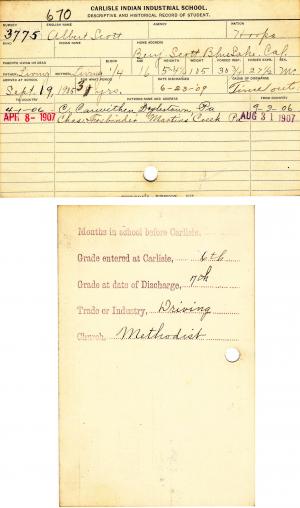 670
CARLISLE INDIAN INDUSTRIAL SCHOOL.
DESCRIPTIVE AND HISTORICAL RECORD OF STUDENT.
NUMBER ENGLISH NAME AGENCY NATION
3775 Albert Scott Hoopa
BAND INDIAN NAME HOME ADDRESS
Benj. Scott Blue Lake, Cal
PARENTS LIVING OR DEAD BLOOD AGE HEIGHT WEIGHT FORCED INSP. FORCED EXPR. SEX
FATHER Living MOTHER Living 1/4 16 5-4½ 105 M
ARRIVED AT SCHOOL FOR WHAT PERIOD DATE DISCHARGED CAUSE OF DISCHARGE
Sept. 19, 1905 3 yrs. 6-23-09 Time out
TO COUNTRY PATRONS NAME AND ADDRESS FROM COUNTRY
4-1-06 C. Carwithen Doylestown, Pa 9-3-06
APR 8- 1907 Chas. Martins Creek Pa AUG 31 1907
Months in school before Carlisle,
Grade entered at Carlisle, 6th
Grade at date of Discharge, 7th
Trade or Industry, Driving
Church, Methodist